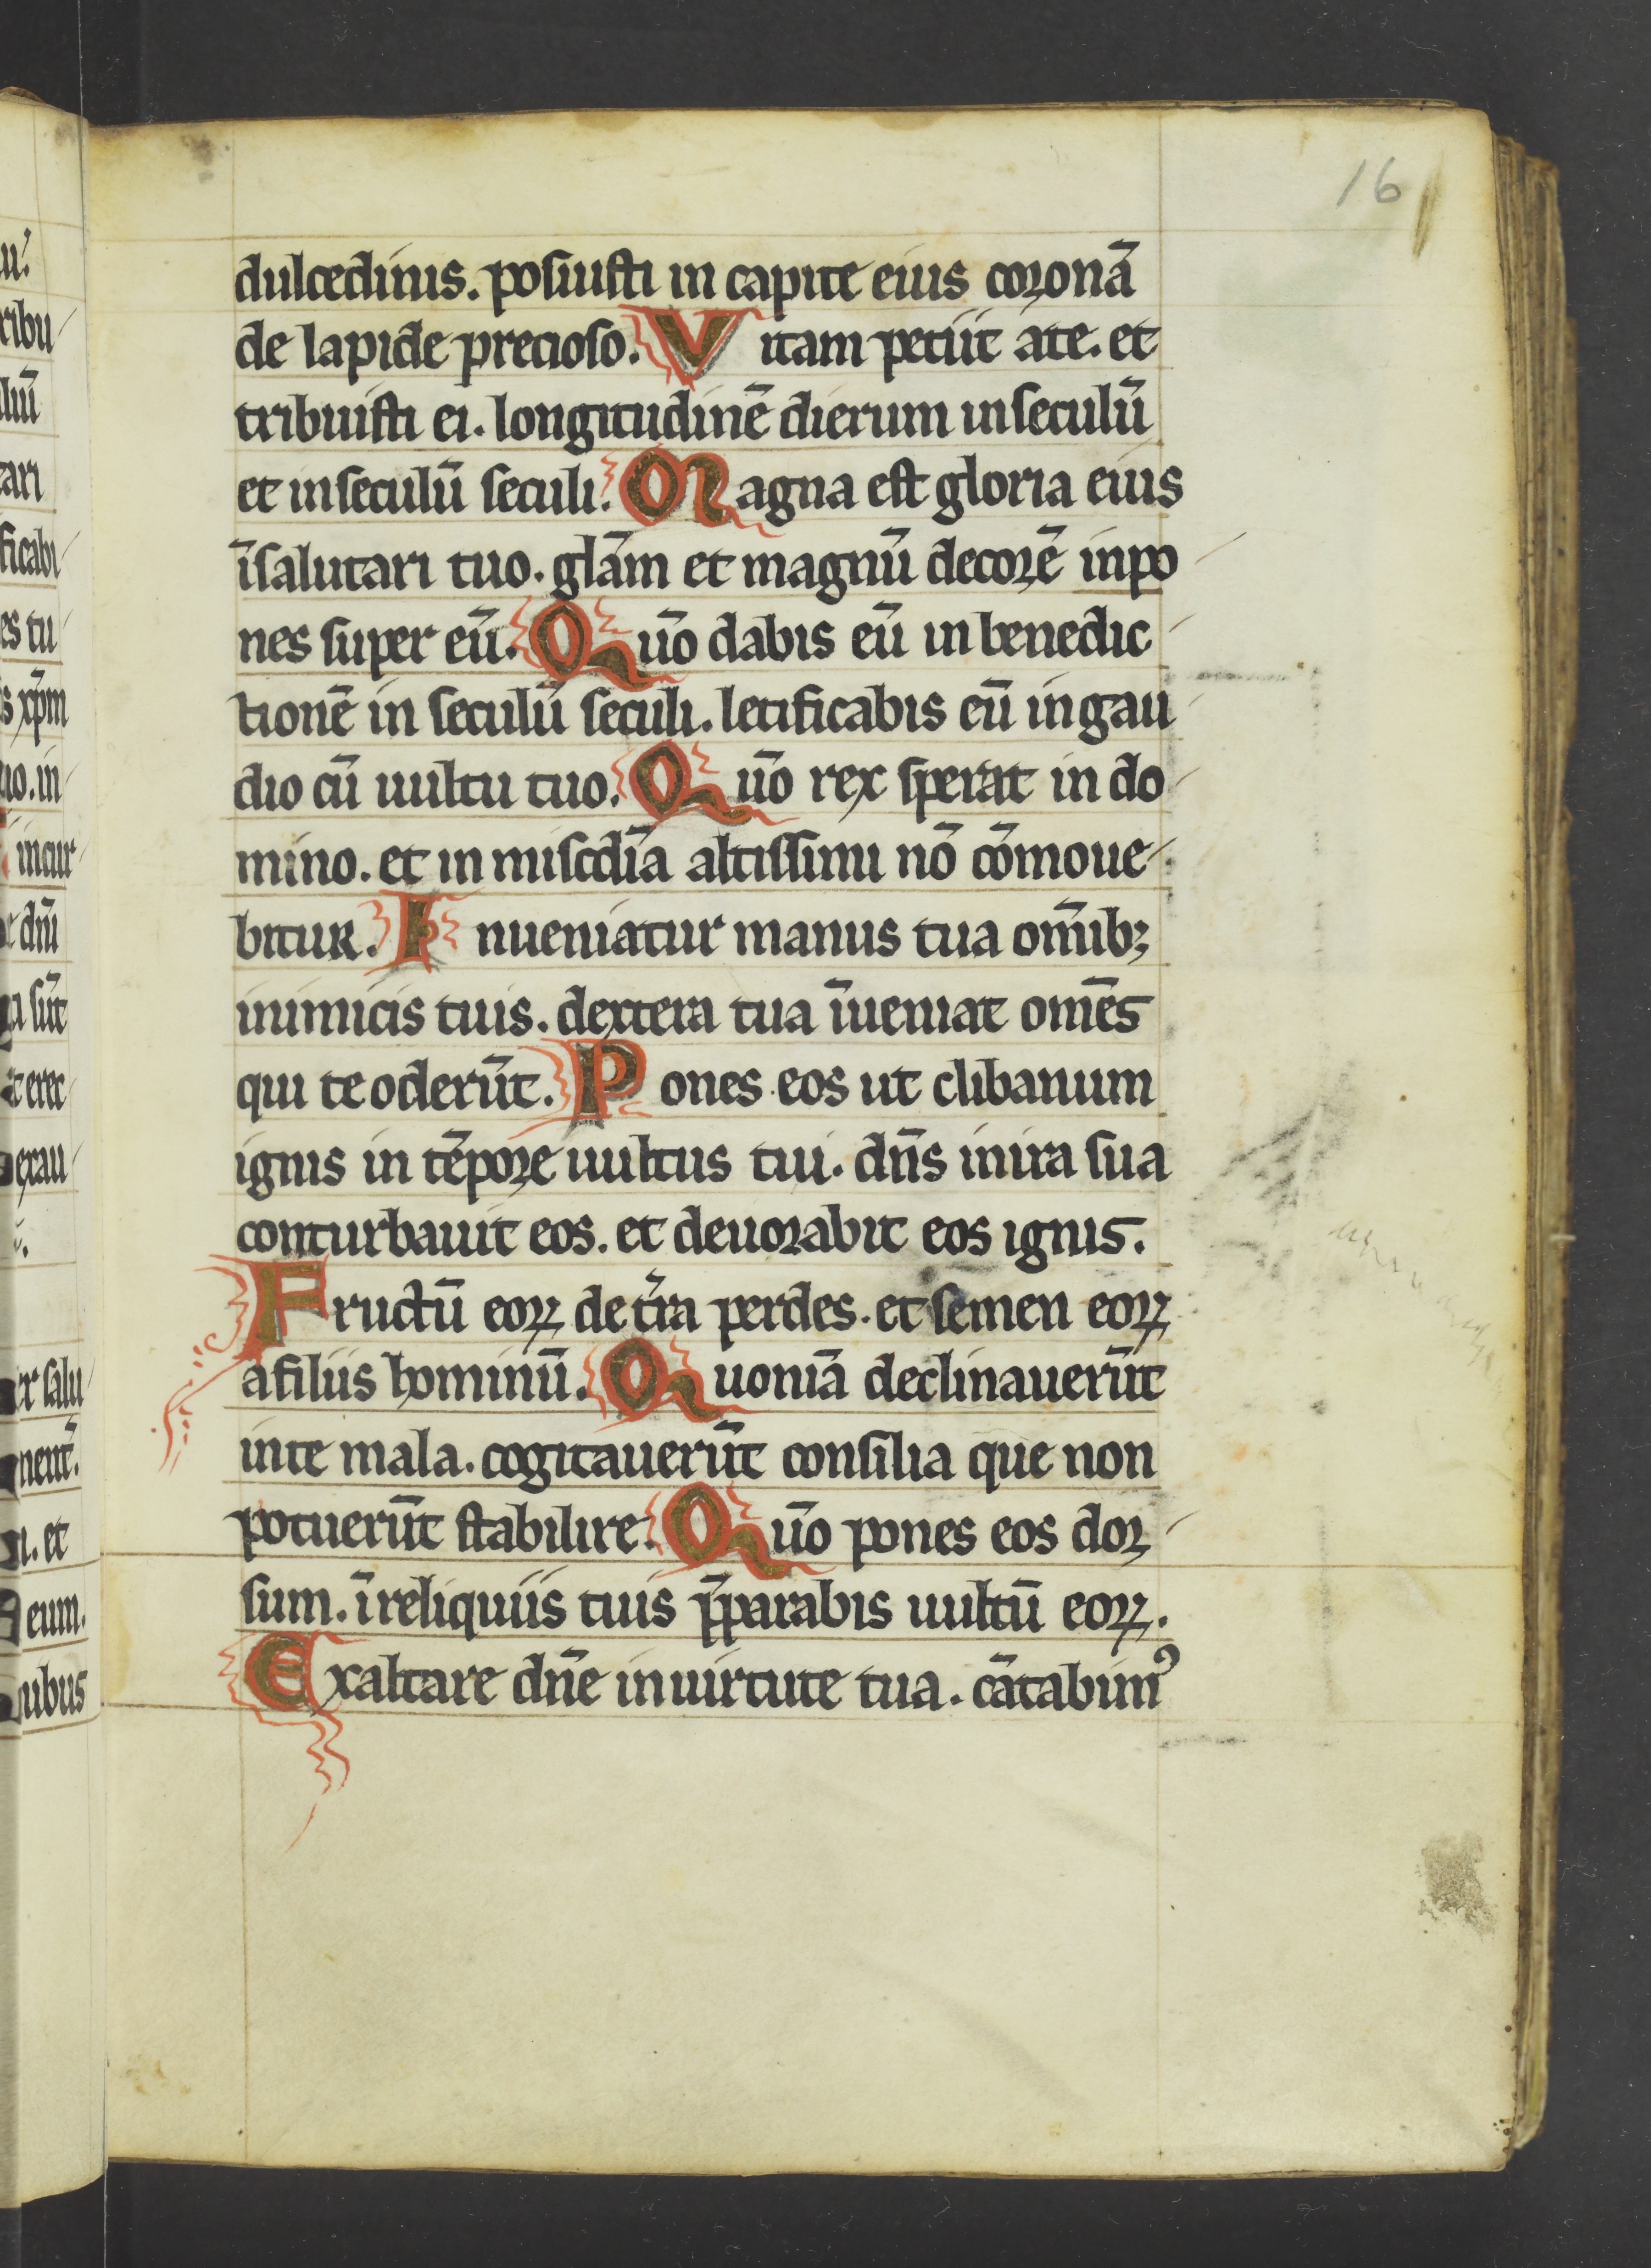 16
dulcedinis. posuisti in capite eius coronā
de lapide precioso. Vitam petiit ate. et
tribuisti ei. longitudinē dierum inseculū
et inseculū seculi. Magna est gloria eius
īsalutari tuo. gl̄am et magnū decorē inpo
nes super eū. Quō dabis eū in benedic
tionē in seculū seculi. letificabis eū in gau
dio cū uultu tuo. Quō rex sperat in do
mino. et in misc̄dia altissimi nō cōmoue
bitur. Inueniatur manus tua om̄ibꝫ
inimicis tuis. dextera tua īueniat om̄es
qui te oderūt. Pones eos ut clibanum
ignis in tēpore uultus tui. dn̄s inira sua
conturbauit eos. et deuorabit eos ignis.
Fructū eoꝝ de t̄ra perdes. et semen eoꝝ
afiliis hominū. Quoniā declinauerūt
inte mala. cogitauerūt consilia que non
potuerūt stabilire. Quō pones eos dor
sum. ī reliquiis tuis p̄parabis uultū eoꝝ.
Exaltare dn̄e inuirtute tua. cātabimꝰ